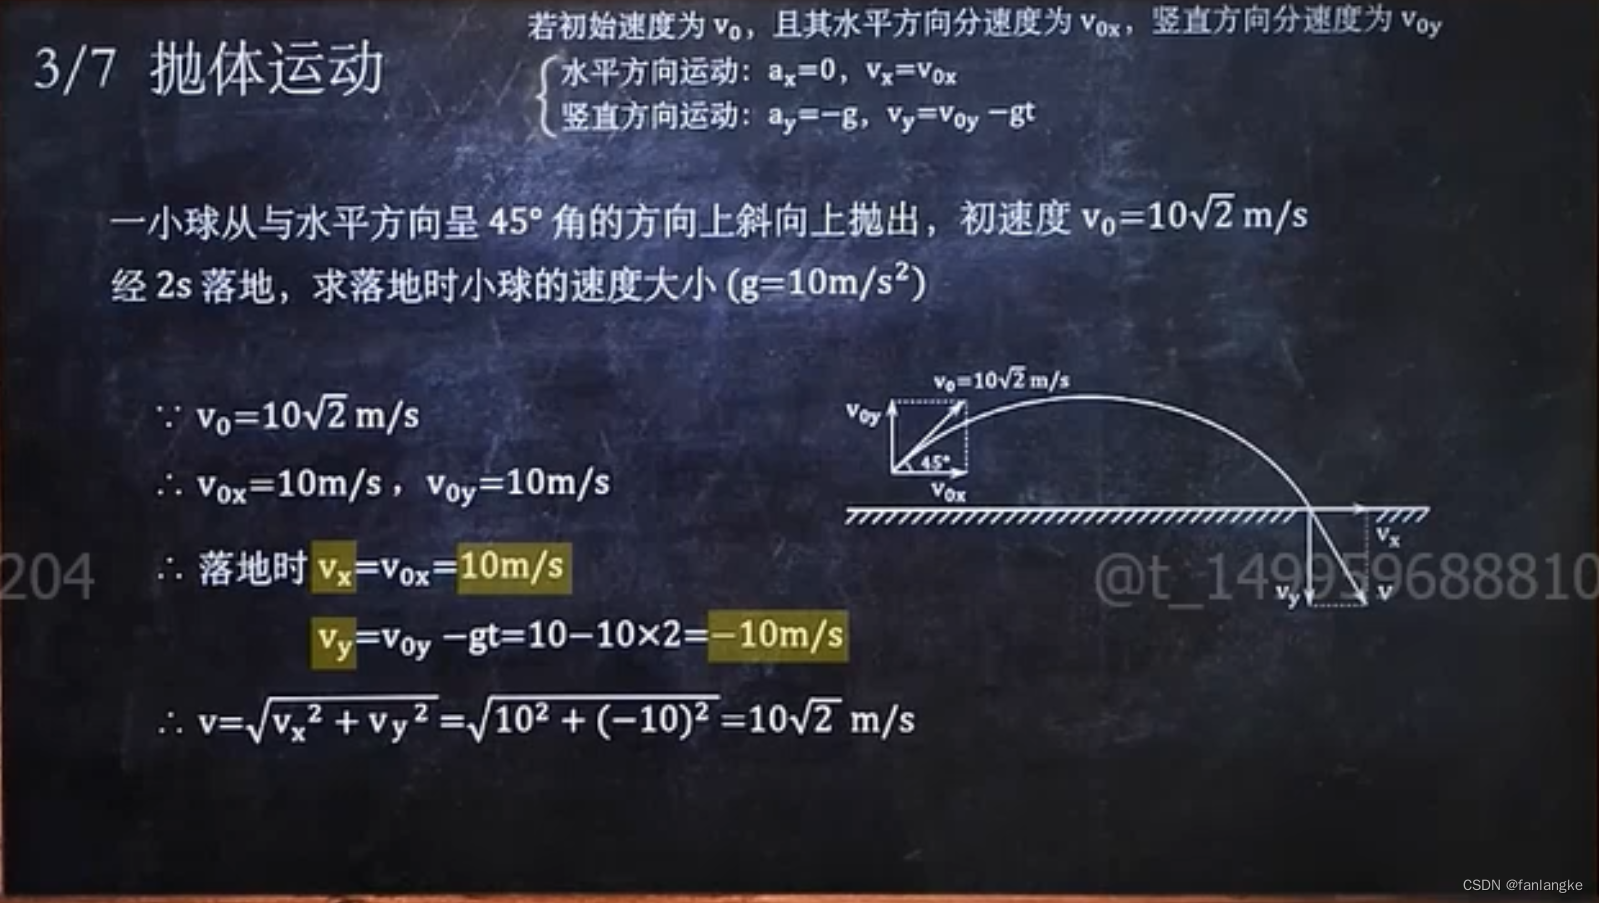 3/7 抛体运动
若初始速度为 v₀，且其水平方向分速度为 v₀ₓ，竖直方向分速度为 v₀y
水平方向运动：aₓ=0，vₓ=v₀ₓ
竖直方向运动：ay=−g，vy=v₀y −gt
一小球从与水平方向呈 45° 角的方向上斜向上抛出，初速度 v₀=10√2 m/s
经 2s 落地，求落地时小球的速度大小 (g=10m/s²)
∵ v₀=10√2 m/s
∴ v₀ₓ=10m/s，v₀y=10m/s
∴ 落地时 vₓ=v₀ₓ=10m/s
vy=v₀y −gt=10−10×2=−10m/s
∴ v=√(vₓ² + vy²)=√(10² + (−10)²)=10√2 m/s
v₀=10√2 m/s
v₀y
45°
v₀ₓ
vₓ
vy
v
204
@t_149959688810
CSDN @fanlangke